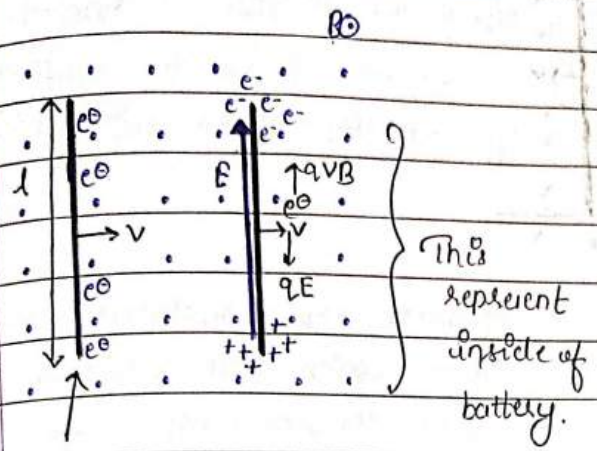 B⊙
e⁻
e⊖ e⁻ e⁻
e⁻ e⁻
l e⊖ E ↑qVB
e⊖
→V →V
qE
e⊖
e⊖
+ +
+ + + +
+
This
represent
inside of
battery.